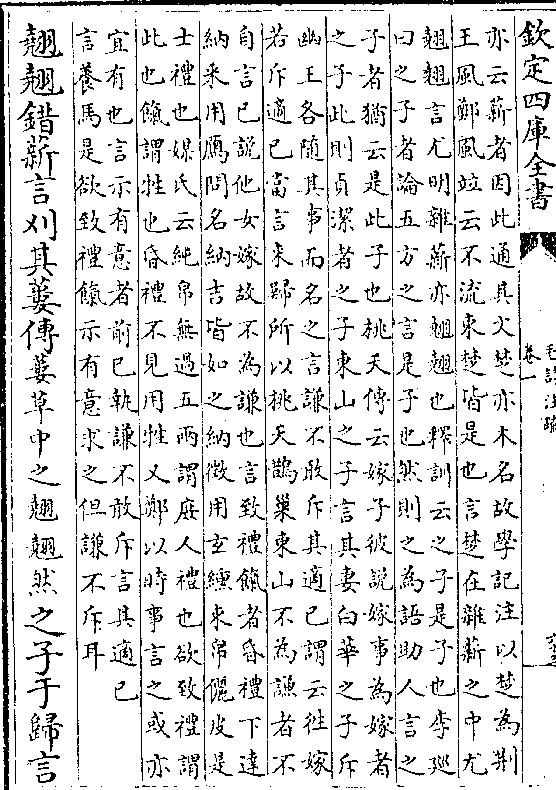 欽定四庫全書
卷一
毛詩注疏
亦云薪者因此通其文楚亦木名故學記注以楚為荆
王風鄭風竝云不流束楚皆是也言楚在雜薪之中尤
翹翹言尤明雜薪亦翹翹也釋訓云之子是子也李廵
曰之子者論五方之言是子也然則之為語助人言之
子者猶云是此子也桃夭傳云嫁子彼說嫁事為嫁者
之子此則貞潔者之子東山之子言其妻白華之子斥
幽王各隨其事而名之言謙不敢斥其適已謂云徃嫁
若斥適已當言來歸所以桃夭鵲巢東山不為謙者不
自言已說他女嫁故不為謙也言致禮餼者昏禮下達
納采用鴈問名納吉皆如之納徵用𤣥纁束帛儷皮是
士禮也媒氏云純帛無過五兩謂庶人禮也欲致禮謂
此也餼謂牲也昏禮不見用牲文鄭以時事言之或亦
宜有也言示有意者前已執謙不敢斥言其適已
言養馬是欲致禮餼示有意求之但謙不斥耳
翹翹錯薪言刈其蔞傳蔞草中之翹翹然之子于歸言